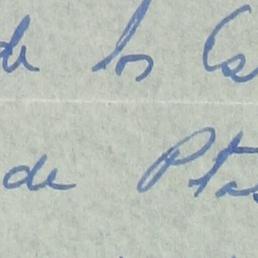 de los
de Ptas